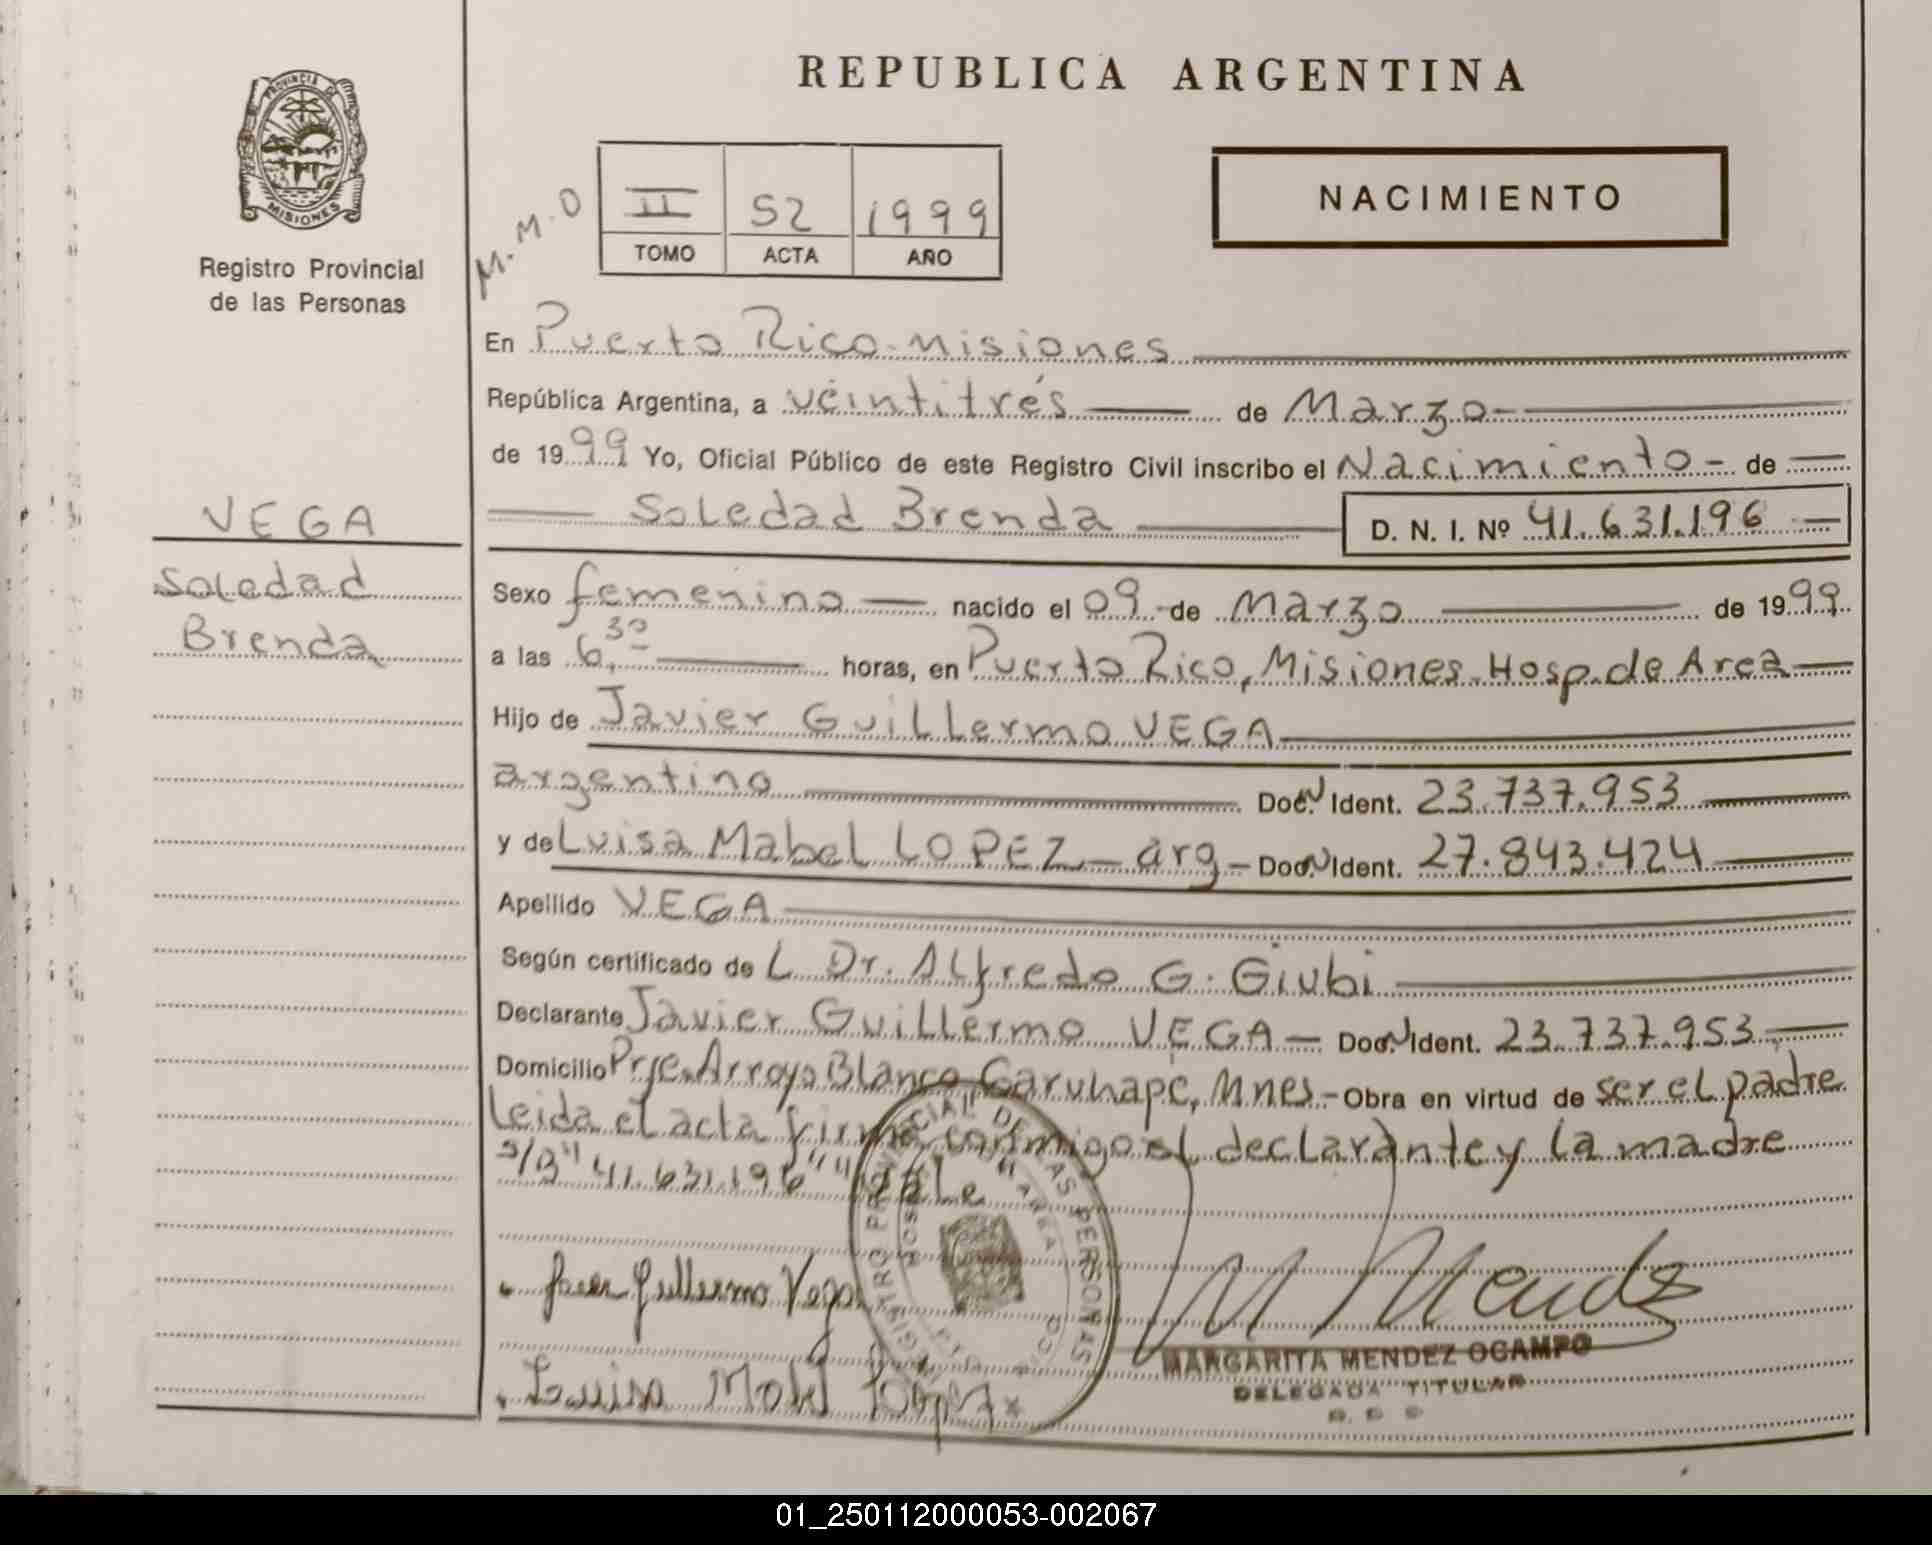 REPUBLICA ARGENTINA
PROVINCIA DE
MISIONES
Registro Provincial
de las Personas
M.M.O
II 52 1999
TOMO ACTA AÑO
NACIMIENTO
En Puerto Rico - Misiones
República Argentina, a veintitrés de Marzo
de 1999 Yo, Oficial Público de este Registro Civil inscribo el Nacimiento - de
Soledad Brenda D. N. I. Nº 41.631.196
VEGA
Soledad
Brenda
Sexo femenino nacido el 09 - de Marzo de 1999
a las 6,30 horas, en Puerto Rico, Misiones - Hosp. de Area
Hijo de Javier Guillermo VEGA
argentino Doc. N Ident. 23.737.953
y de Luisa Mabel LOPEZ - arg - Doc. N Ident. 27.843.424
Apellido VEGA
Según certificado de L Dr. Alfredo G. Giubi
Declarante Javier Guillermo VEGA - Doc. N Ident. 23.737.953
Domicilio Prje. Arroyo Blanco Garuhapé, Mnes - Obra en virtud de ser el padre
Leida el acta firma conmigo el declarante y la madre
S/B "41.631.196" Vale
REGISTRO PROVINCIAL DE LAS PERSONAS
Javier Guillermo Vega
M Mendez
MARGARITA MENDEZ OCAMPO
DELEGADA TITULAR
Luisa Mabel López
01_250112000053-002067